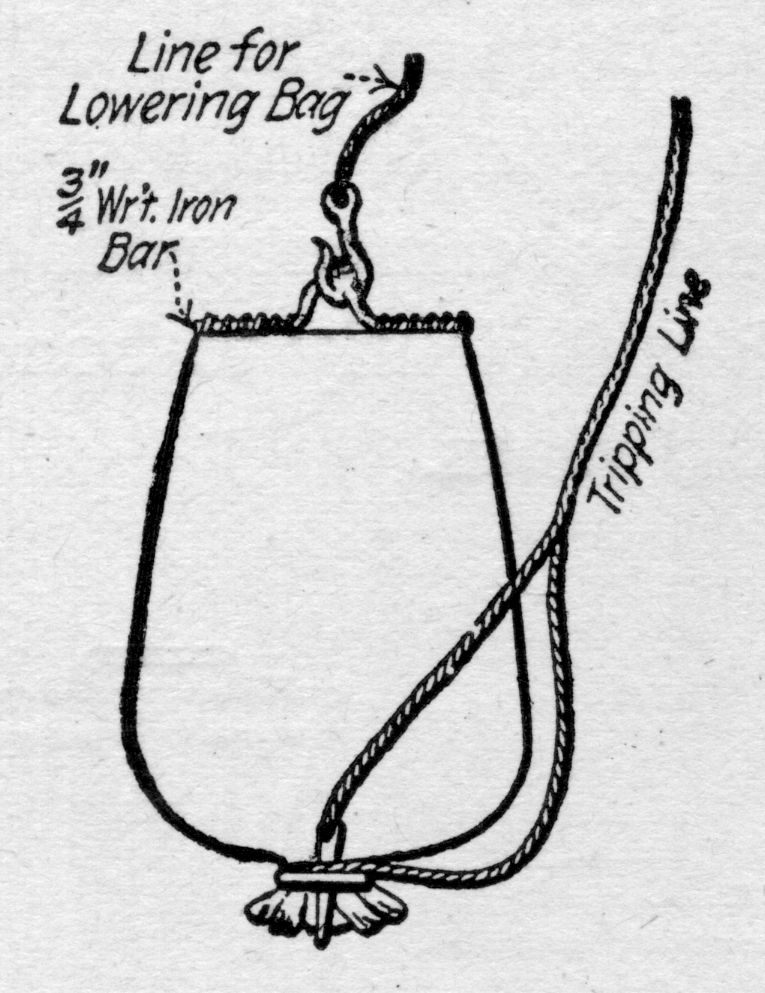 Line for
Lowering Bag
3/4" Wr't. Iron
Bar
Tripping Line